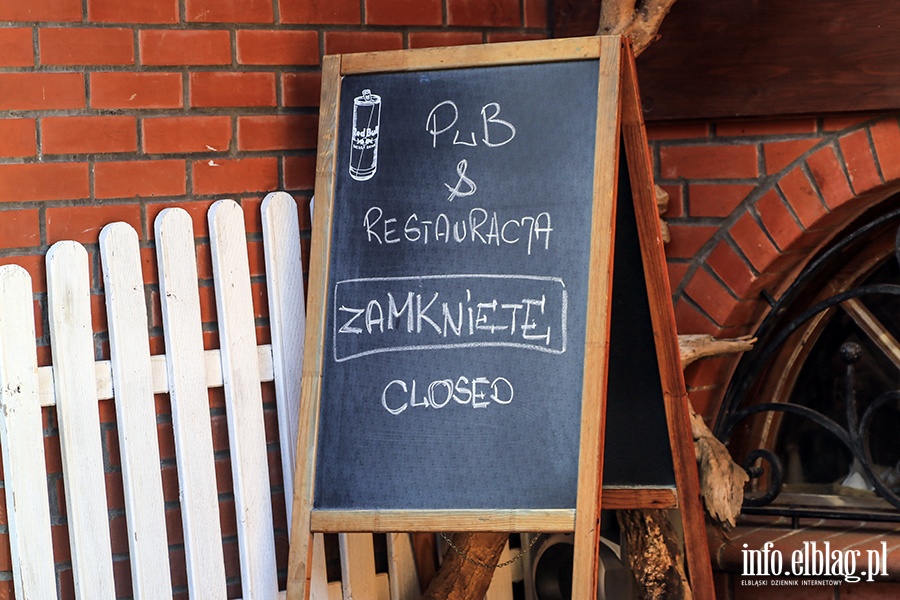 Red Bull
PuB
&
RESTAURACJA
ZAMKNIĘTE
CLOSED
info.elbląg.pl
ELBLĄSKI DZIENNIK INTERNETOWY